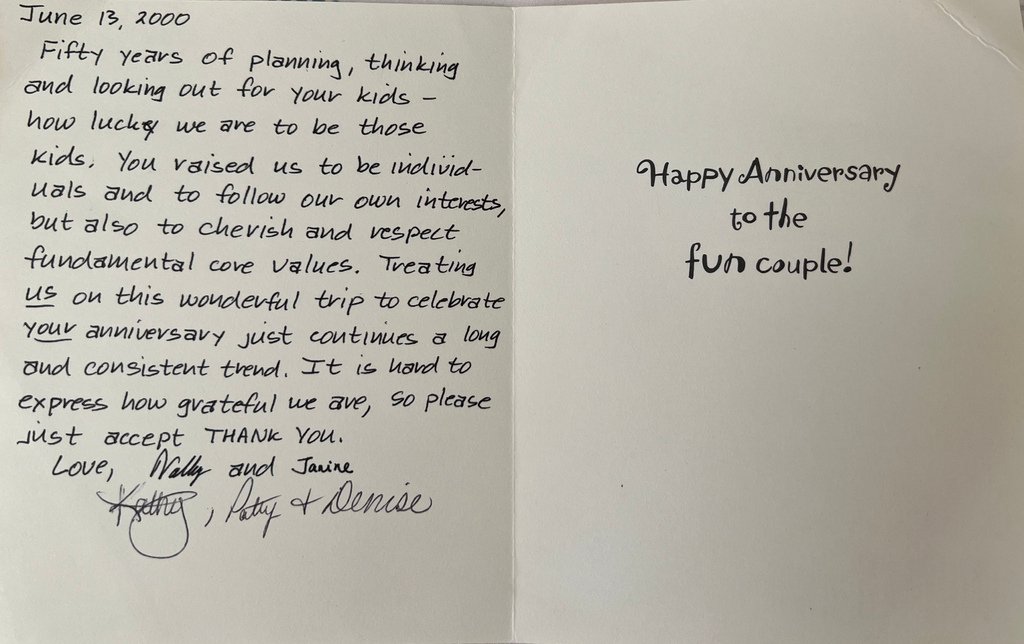 June 13, 2000
Fifty years of planning, thinking
and looking out for your kids –
how lucky we are to be those
kids. You raised us to be individ-
uals and to follow our own interests,
but also to cherish and respect
fundamental core values. Treating
us on this wonderful trip to celebrate
your anniversary just continues a long
and consistent trend. It is hard to
express how grateful we are, so please
just accept THANK YOU.
Love, Wally and Janine
Kathy, Patty + Denise
Happy Anniversary
to the
fun couple!